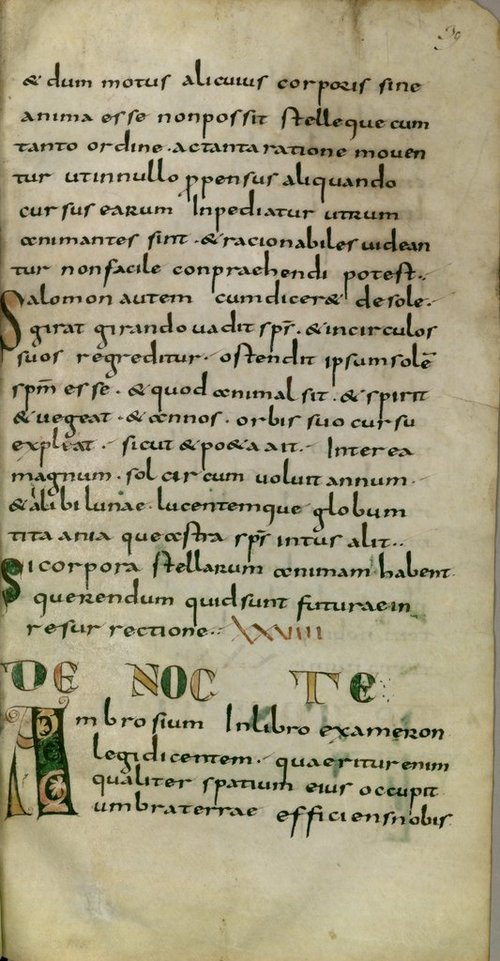 39
& dum motus alicuius corporis sine
anima esse nonpossit stelleque cum
tanto ordine · ac tanta ratione moven
tur utinnullo ꝓpensus aliquando
cursus earum Inpediatur utrum
animantes sint · & racionabiles uidean
tur non facile conpraehendi potest ..
Salomon autem cum dicer& desole ·
girat girando uadit spr̄ · & incirculos
suos regreditur · ostendit ipsum solē
spm̄ esse · & quod animal sit · & spirit
& uegeat · & annos · orbis suo cursu
expleat · sicut & po&a ait · Interea
magnum · sol circum voluit annum ·
& alibi lunae · lucentemque globum
titania que astra spr̄ intus alit ..
Si corpora stellarum animam habent
querendum quid sunt futurae in
resurrectione .. XXVIIII
DE NOCTE
Ambrosium Inlibro exameron
legi dicentem · quaeritur enim
qualiter spatium eius occupit
umbra terrae efficiens nobis